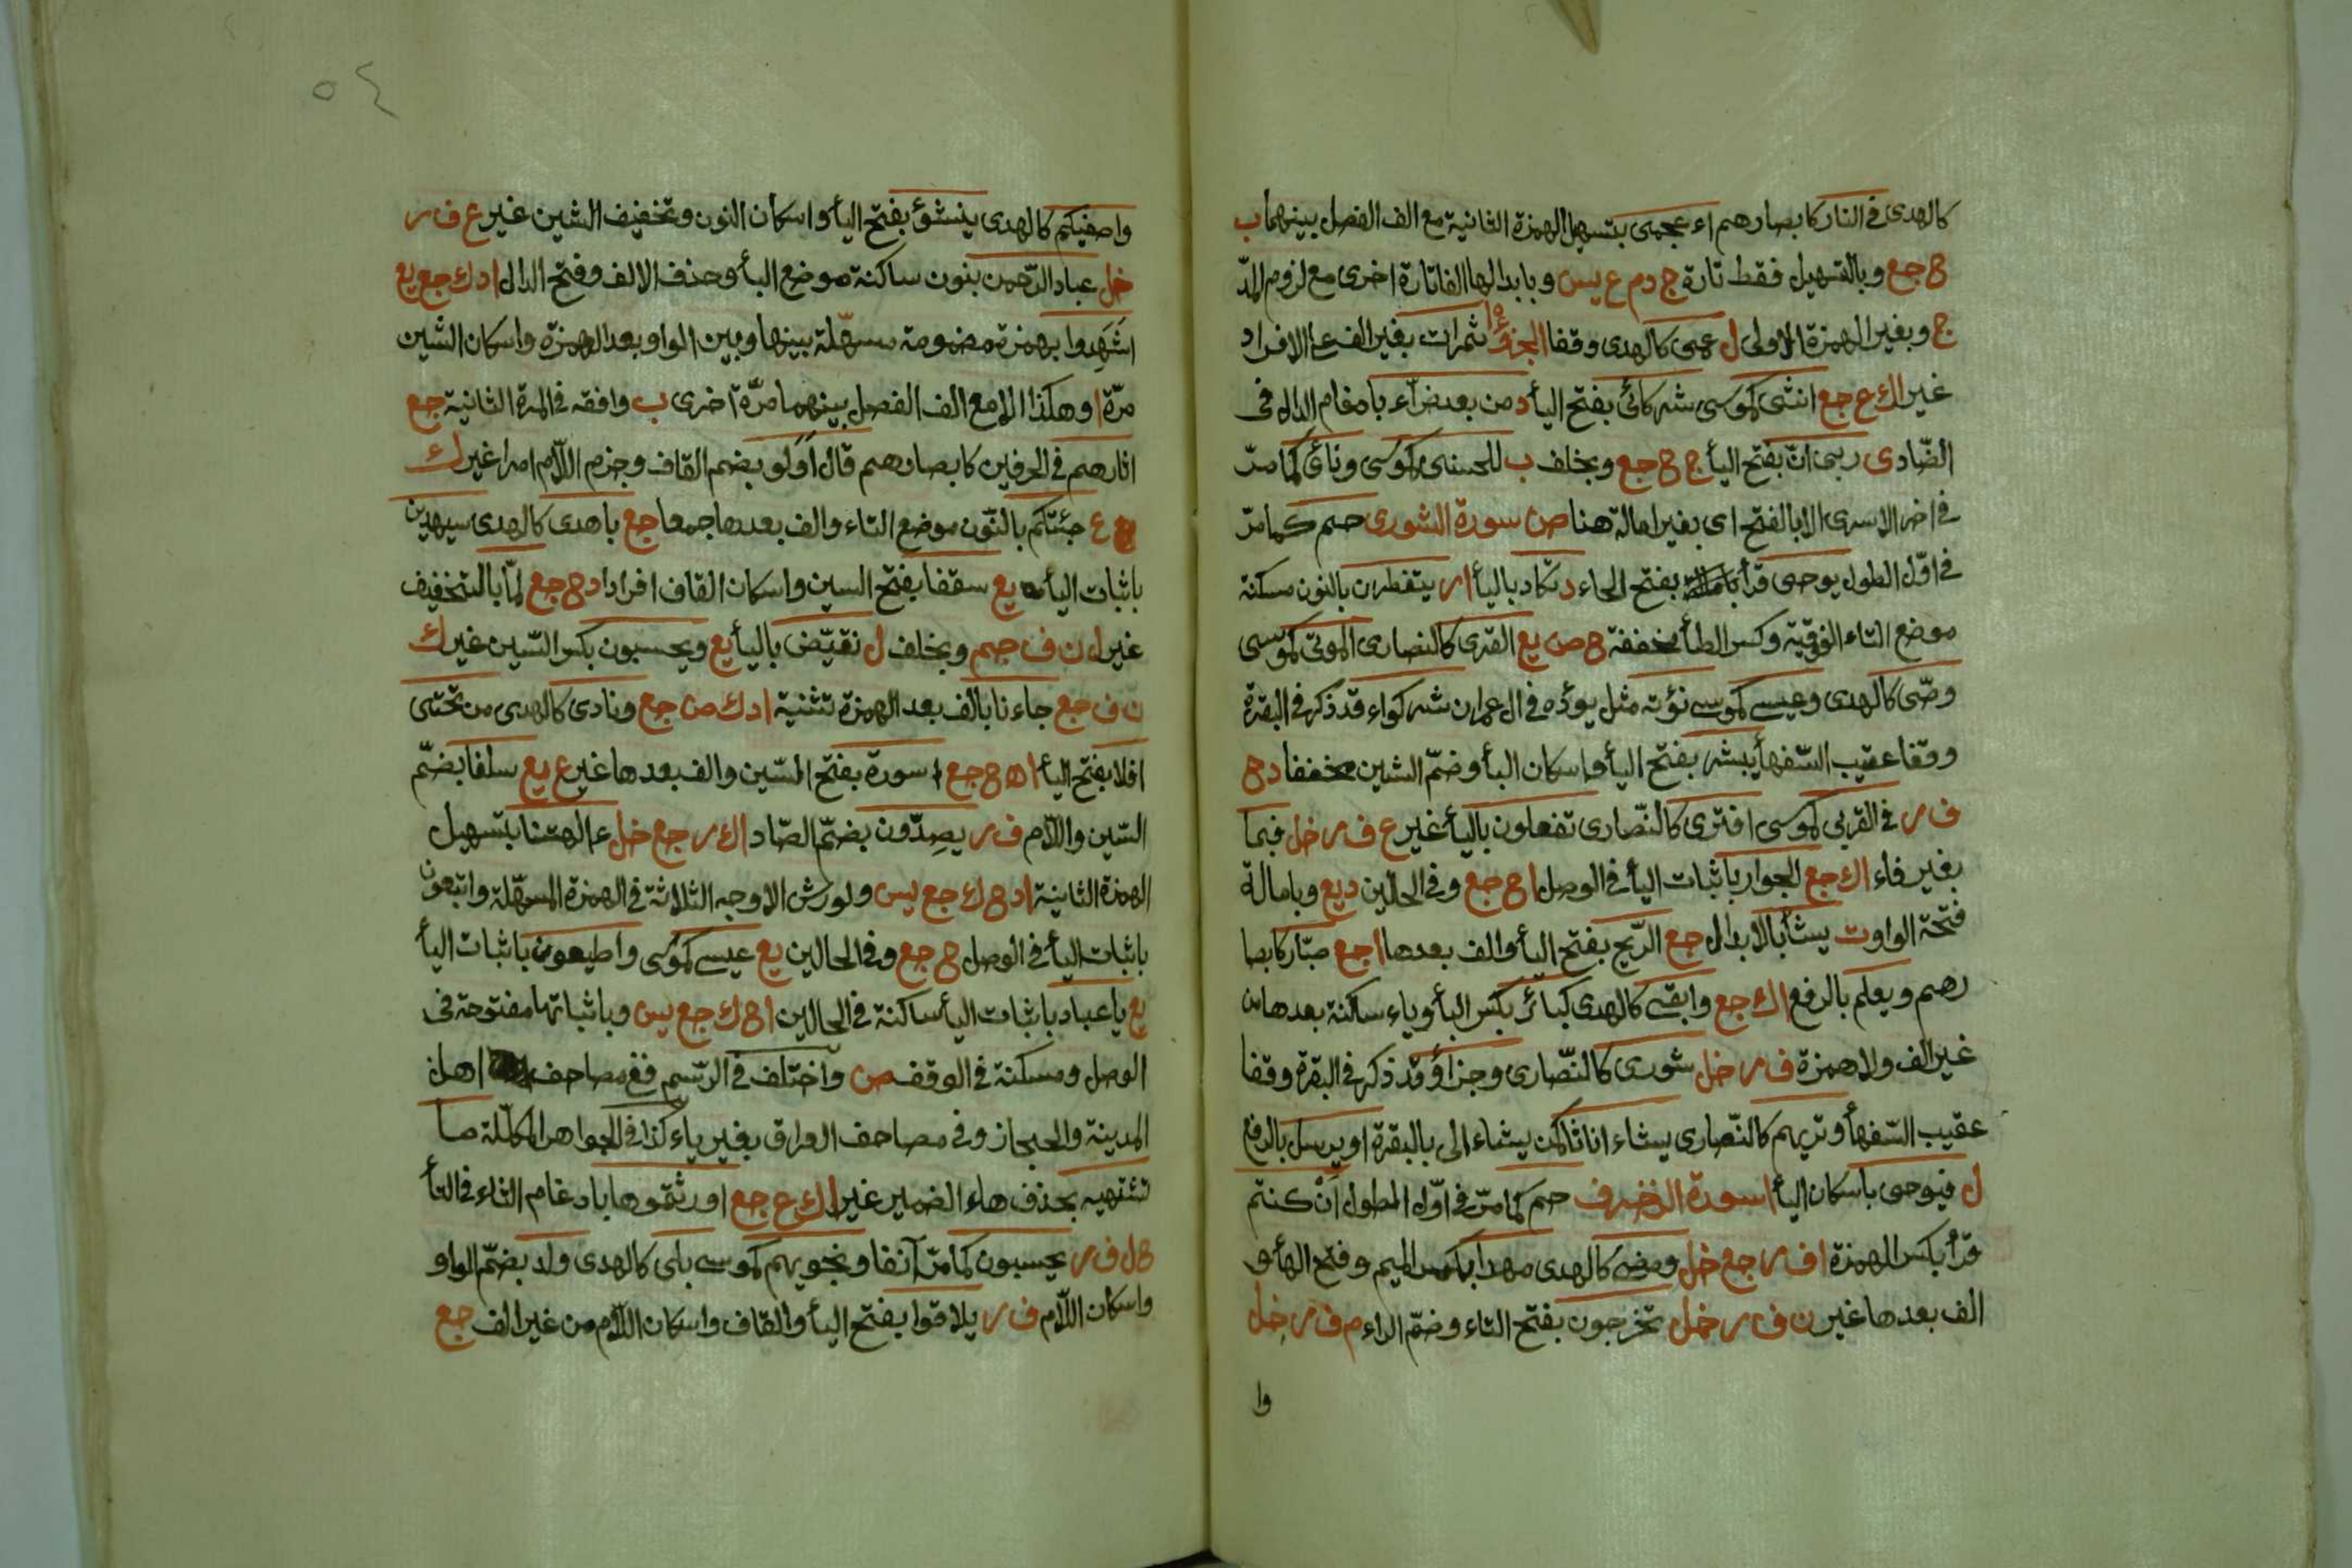 كالهدى فى النار كابصارهم اء عجمى بتسهيل الهمزة الثانية مع الف الفصل بينهما ب
ح جع وبالتسهيل فقط تارة ج د م ع يس وبابدالها الفا تارة اخرى مع لزوم المدّ
ج وبغير الهمزة الاولى ل عمى كالهدى وقفا ثمرات بغير الف على الافراد
غير اك ع جع انثى كموسى شركائى بفتح الياء د من بعد ضراء بامقام الداله فى
الضّادى ربى انّ بفتح الياء ج ح جع وبخلف ب للحسنى كموسى ونأى كما مرّ
فى اخر الاسرى الا بالفتح اى بغير امالة هنا ص سورة الشورى حم كما مرّ
فى اوّل الطول يوحى قرأ بفتح الحاء د تكاد بالياء ار يتفطرن بالنون مسكنة
موضع التاء الفوقية وكسر الطاء مخففة ح ص يع القرى كالنصارى الموتى كموسى
وصّى كالهدى وعيسى كموسى نؤته مثل يؤده فى ال عمران شركواء قد ذكر فى البقرة
وقفا عقيب السّفهاء يبشر بفتح الياء واسكان الباء وضمّ الشين مخففا د ح
ف ر فى القربى كموسى افترى كالنّصارى تفعلون بالياء غير ع ف ر خل فبما
بغير فاء اك جع الجوار باثبات الياء فى الوصل ا ح جع وفى الحالين د يع وبامالة
فتحة الواو ت يشأ بالابدال جع الرّيح بفتح الياء والف بعدها ا جع صبّار كابصا
رهم ويعلم بالرفع اك جع وابقى كالهدى كبائر بكسر الباء وياء ساكنة بعدها من
غير الف ولا همزة ف ر خل شورى كالنّصارى وجزاؤ قد ذكر فى البقرة وقفا
عقيب السّفهاء وتريهم كالنّصارى يشاء اناثا كمن يشاء الى بالبقرة او يرسل بالرفع
ل فيوحى باسكان الياء ا سورة الزخرف حم كما مرّ فى اوّل الطول ان كنتم
قرأ بكسر الهمزة ا ف ر جع خل ومضى كالهدى مهدا بكسر الميم وفتح الهاء و
الف بعدها غير ن ف ر خل تخرجون بفتح التاء وضمّ الراء م ف ر خل
وا
٥٤
واصفيكم كالهدى ينشؤ بفتح الياء واسكان النون وتخفيف الشين غير ع ف ر
خل عباد الرّحمن بنون ساكنة موضع الباء وحذف الالف وفتح الدال ا د ك جع يع
اشَهِدوا بهمزة مضمومة مسهّلة بينها وبين الواو بعد الهمزة واسكان الشين
مرّة ا وهكذا الا مع الف الفصل بينهما مرّة اخرى ب وافقه فى المرة الثانية جع
اثارهم فى الحرفين كابصارهم قال اَوَلو بضم القاف وجزم اللّام امرا غير ك
ع جئتكم بالنّون موضع التاء والف بعدها جمعا جع باهدى كالهدى سيهدين
باثبات الياء يع سقفا بفتح السين واسكان القاف افرادا د ح جع لمّا بالتخفيف
غير ا ن ف جم وبخلف ل نقيّض بالياء يع ويحسبون بكسر السّين غير ك
ن ف جع جاءنا بالف بعد الهمزة تثنية ا د ك ص جع ونادى كالهدى من تحتى
افلا بفتح الياء ا ه ح جع اسورة بفتح السّين والف بعدها غير ع يع سلفا بضمّ
السّين واللّام ف ر يصِدّون بضمّ الصّاد اك ر جع خل ءالهتنا بتسهيل
الهمزة الثانية ا د ح ك جع يس ولورش الاوجه الثلاثة فى الهمزة المسهّلة واتبعون
باثبات الياء فى الوصل ح جع وفى الحالين يع عيسى كموسى واطيعون باثبات الياء
يع يا عباد باثبات الياء ساكنة فى الحالين ا ح ك جع يس وباثباتها مفتوحة فى
الوصل ومسكنة فى الوقف ص واختلف فى الرّسم ففى مصاحف اهل
المدينة والحجاز وفى مصاحف العراق بغير ياء كذا فى الجواهر المكلّلة ما
تشتهيه بحذف هاء الضمير غير اك ع جع اورثتموها بادغام الثاء فى التاء
ح ل ف ر يحسبون كما مرّ آنفا ونجويهم كموسى بلى كالهدى ولد بضمّ الواو
واسكان اللّام ف ر يلاقوا بفتح الياء والقاف واسكان اللّام من غير الف جع